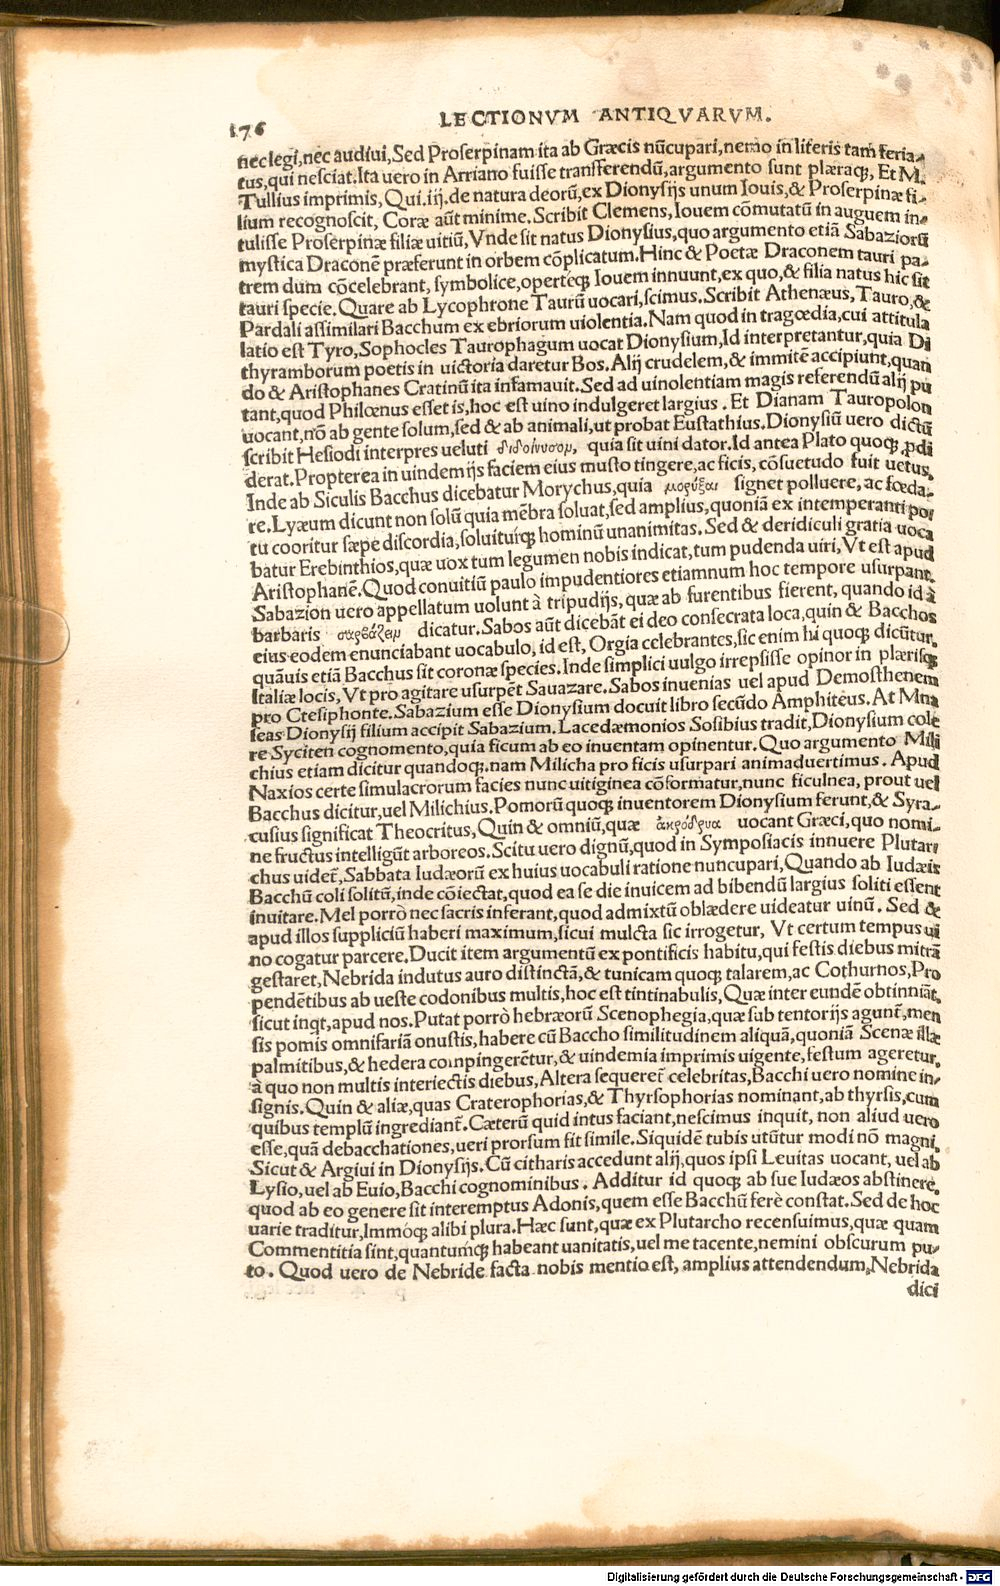 176
LECTIONVM ANTIQVARVM.
nec legi, nec audiui, Sed Proserpinam ita ab Græcis nūcupari, nemo in literis tam feria-
tus, qui nesciat. Ita uero in Arriano fuisse transferendū, argumento sunt plæraq;, Et M.
Tullius imprimis, Qui .iij. de natura deorū, ex Dionysijs unum Iouis, & Proserpinæ fi-
lium recognoscit, Coræ aūt minime. Scribit Clemens, Iouem cōmutatū in auguem in-
tulisse Proserpinæ filiæ uitiū, Vnde sit natus Dionysius, quo argumento etiā Sabaziorū
mystica Draconē præferunt in orbem cōplicatum. Hinc & Poetæ Draconem tauri pa-
trem dum cōcelebrant, symbolice, operteq; Iouem innuunt, ex quo, & filia natus hic sit
tauri specie. Quare ab Lycophrone Taurū uocari, scimus. Scribit Athenæus, Tauro, &
Pardali assimilari Bacchum ex ebriorum uiolentia. Nam quod in tragœdia, cui attitula
latio est Tyro, Sophocles Taurophagum uocat Dionysium, Id interpretantur, quia Di
thyramborum poetis in uictoria daretur Bos. Alij crudelem, & immitē accipiunt, quan
do & Aristophanes Cratinū ita infamauit. Sed ad uinolentiam magis referendū alij pu
tant, quod Philœnus esset is, hoc est uino indulgeret largius. Et Dianam Tauropolon
uocant, nō ab gente solum, sed & ab animali, ut probat Eustathius. Dionysiū uero dictū
scribit Hesiodi interpres ueluti διδοίνυσομ, quia sit uini dator. Id antea Plato quoq; ꝓdi
derat. Propterea in uindemijs faciem eius musto tingere, ac ficis, cōsuetudo fuit uetus,
Inde ab Siculis Bacchus dicebatur Morychus, quia μορύξαι signet polluere, ac fœda-
re. Lyæum dicunt non solū quia mēbra soluat, sed amplius, quoniā ex intemperanti po
tu cooritur sæpe discordia, soluiturq; hominū unanimitas. Sed & deridiculi gratia uoca
batur Erebinthios, quæ uox tum legumen nobis indicat, tum pudenda uiri, Vt est apud
Aristophanē. Quod conuitiū paulo impudentiores etiamnum hoc tempore usurpant.
Sabazion uero appellatum uolunt à tripudijs, quæ ab furentibus fierent, quando id à
barbaris σαρβάζειμ dicatur. Sabos aūt dicebāt ei deo consecrata loca, quin & Bacchos
eius eodem enunciabant uocabulo, id est, Orgia celebrantes, sic enim hi quoq; dicūtur,
quāuis etiā Bacchus sit coronæ species. Inde simplici uulgo irrepsisse opinor in plærisq;
Italiæ locis, Vt pro agitare usurpēt Sauazare. Sabos inuenias uel apud Demosthenem
pro Ctesiphonte. Sabazium esse Dionysium docuit libro secūdo Amphiteus. At Mna
seas Dionysij filium accipit Sabazium. Lacedæmonios Sosibius tradit, Dionysium cole
re Syciten cognomento, quia ficum ab eo inuentam opinentur. Quo argumento Mili
chius etiam dicitur quandoq; nam Milicha pro ficis usurpari animaduertimus. Apud
Naxios certe simulacrorum facies nunc uitiginea cōformatur, nunc ficulnea, prout uel
Bacchus dicitur, uel Milichius. Pomorū quoq; inuentorem Dionysium ferunt, & Syra-
cusius significat Theocritus, Quin & omniū, quæ ἀκρόδρυα uocant Græci, quo nomi-
ne fructus intelligūt arboreos. Scitu uero dignū, quod in Symposiacis innuere Plutar
chus uidet̄, Sabbata Iudæorū ex huius uocabuli ratione nuncupari, Quando ab Iudæis
Bacchū coli solitū, inde cōiectat, quod ea se die inuicem ad bibendū largius soliti essent
inuitare. Mel porrò nec sacris inferant, quod admixtū oblædere uideatur uinū. Sed &
apud illos suppliciū haberi maximum, sicui mulcta sic irrogetur, Vt certum tempus ui
no cogatur parcere, Ducit item argumentū ex pontificis habitu, qui festis diebus mitrā
gestaret, Nebrida indutus auro distinctā, & tunicam quoq; talarem, ac Cothurnos, Pro
pendētibus ab ueste codonibus multis, hoc est tintinabulis, Quæ inter eundē obtinniāt,
sicut inqt, apud nos. Putat porrò hebræorū Scenophegia, quæ sub tentorijs agunt̄, men
sis pomis omnifariā onustis, habere cū Baccho similitudinem aliquā, quoniā Scenæ illæ
palmitibus, & hedera compingerētur, & uindemia imprimis uigente, festum ageretur,
à quo non multis interiectis diebus, Altera sequeret̄ celebritas, Bacchi uero nomine in-
signis. Quin & aliæ, quas Craterophorias, & Thyrsophorias nominant, ab thyrsis, cum
quibus templū ingrediant̄. Cæterū quid intus faciant, nescimus inquit, non aliud uero
esse, quā debacchationes, ueri prorsum fit simile. Siquidē tubis utūtur modi nō magni,
Sicut & Argiui in Dionysijs. Cū citharis accedunt alij, quos ipsi Leuitas uocant, uel ab
Lysio, uel ab Euio, Bacchi cognominibus. Additur id quoq; ab sue Iudæos abstinere,
quod ab eo genere sit interemptus Adonis, quem esse Bacchū ferè constat. Sed de hoc
uarie traditur, Immóq; alibi plura. Hæc sunt, quæ ex Plutarcho recensuimus, quæ quam
Commentitia sint, quantumq; habeant uanitatis, uel me tacente, nemini obscurum pu-
to. Quod uero de Nebride facta nobis mentio est, amplius attendendum, Nebrida
dici
Digitalisierung gefördert durch die Deutsche Forschungsgemeinschaft - DFG